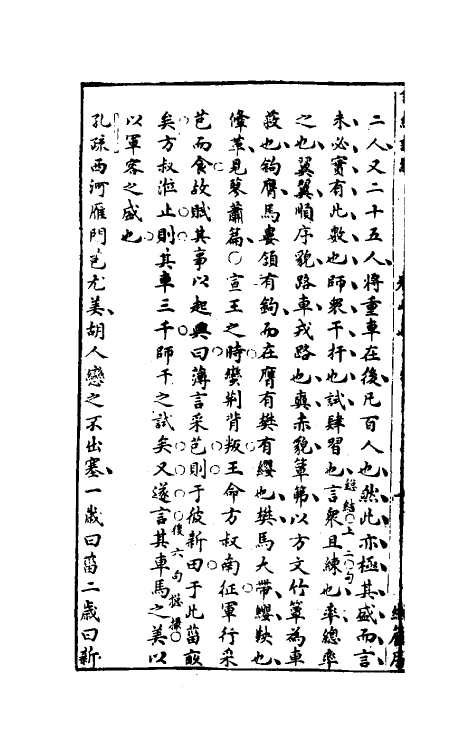 二人又二十五人將重車在後凡百人也然此亦極其盛而言
未必實有此數也師衆干扞也試肄習也言衆且練也總結上二句率總率
之也翼翼順序貌路車戎路也奭赤貌簟笰以方文竹簟為車
蔽也鉤膺馬婁頷有鉤而在膺有樊有纓也樊馬大帶纓鞅也
鞗革見蓼蕭篇○宣王之時蠻荆背叛王命方叔南征軍行采
芑而食故賦其事以起興曰薄言采芑則于彼新田于此菑畝
矣方叔涖止則其車三千師干之試矣又遂言其車馬之美以後六句
以軍容之盛也
孔疏西河雁門芑尤美胡人戀之不出塞一歲曰菑二歲曰新